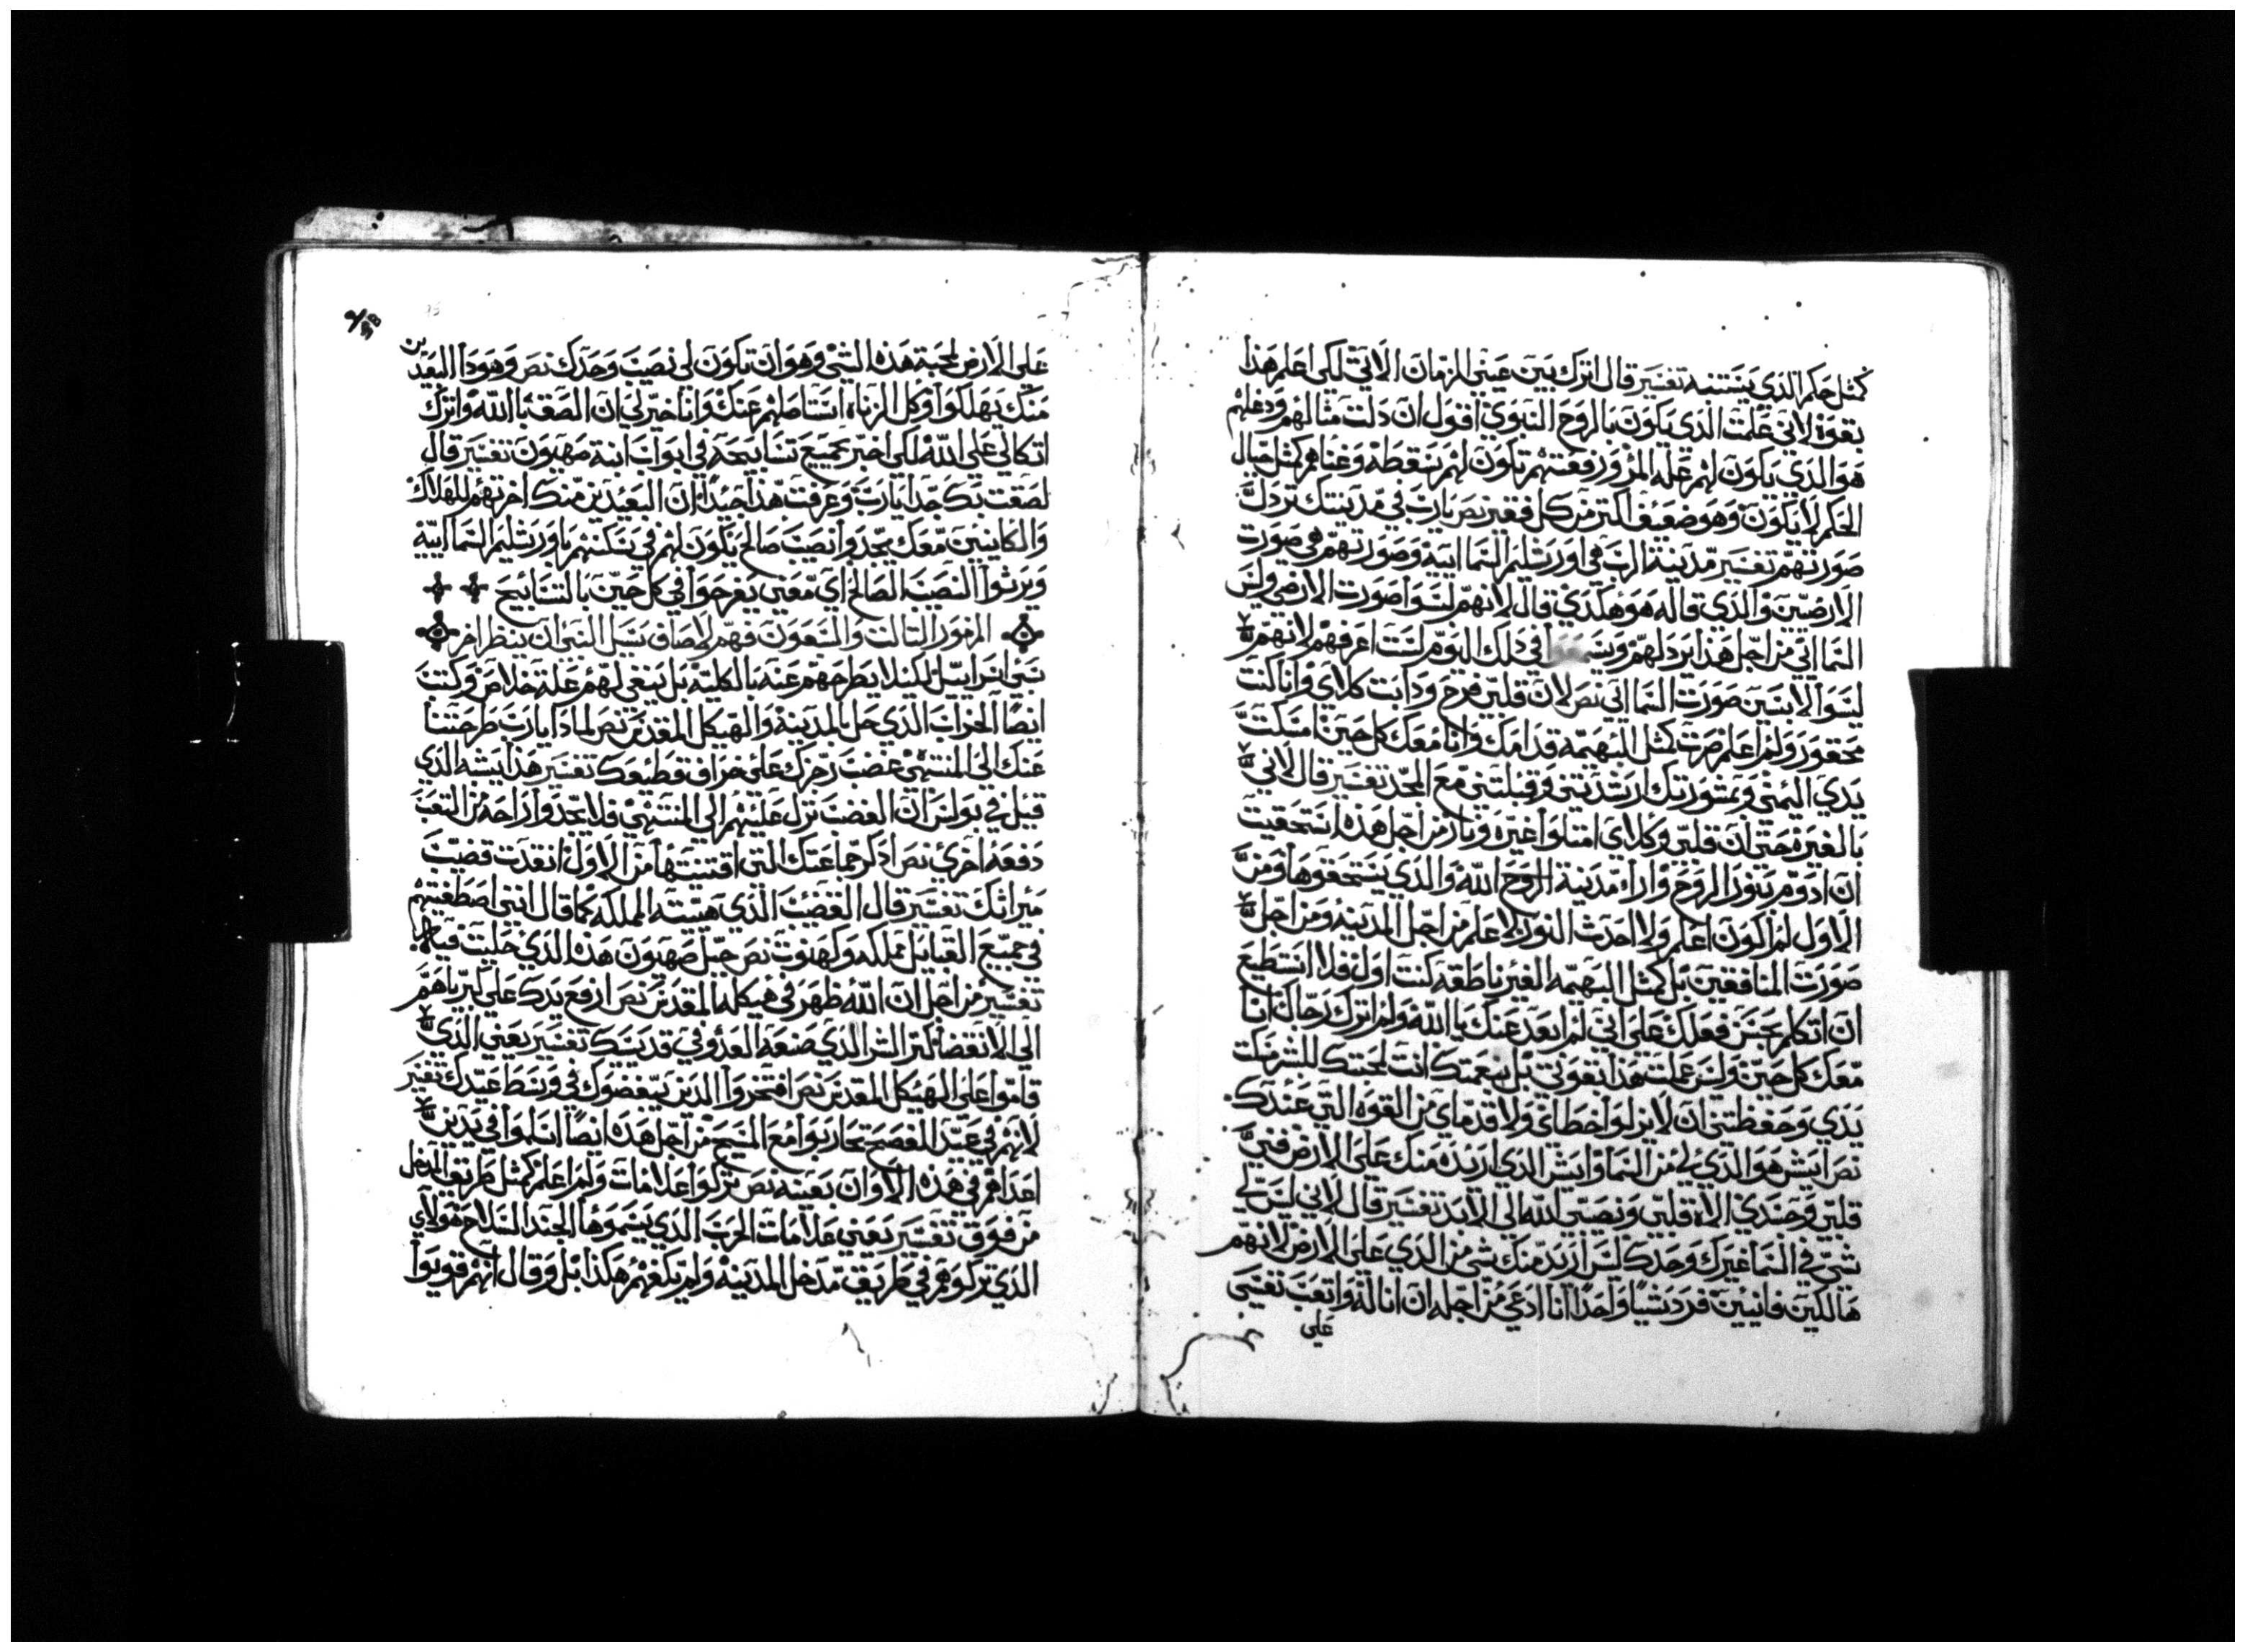 كمثل حلم الذي يستنبه تفسير قال اترك بين عيني الزمان الاتي لكي اعلم هذا
بقوة لاني علمت الذي يكون بالروح النبوي اقول ان دلت مثالهم ودغلهم
هوا الذي يكون لهم علة المزور رفعتهم تكون لهم سقطة وغناهم كمثل خيال
الحلم لا يكون وهو ضعيف اكتر من كل فقير نص يارب في مدينتك تردل
صورتهم تفسير مدينة الرب هي اورشليم السماايية وصورتهم هي صورت
الارضيين والذي قاله هو هكدي قال لانهم لبسوا صورت الارضي وليس
السمااتي من اجل هذا يردلهم في دلك اليوم لست اعرفهم لانهم
لبسوا الابنين صورت السمااتي نص لان قلبي فرح ودابت كلاي وانا كنت
محقور ولم اعلم صرت كمثل البهيمة قدامك وانا معك كل حين امسكت
يدي اليمني وبمشورتك ارشدتني وقبلتني مع المجد تفسير قال لاني
بالغيرة حتى ان قلبي وكلاي امتلوا غيره ونار من اجل هذه استحقيت
ان ادوم بنور الروح وارا مدينة الروح الله والدي يستحقوها ومن
الاول لم اكون اعلم ولا احدت النور لاعلم من اجل المدينة ومن اجل
صورت المنافقين بل كمثل البهيمه الغير ناطقه كنت اول فلا استطيع
ان اتكلم بحسن فعلك علي اني لم ابعد عنك يا الله ولم اترك رجاك انا
معك كل حين وليس عملت هذا بقوتي بل بنعمتك انت لمحبتك للبشر مسكت
يدي وحفظتني ان لا يزلوا خطاي ولا قدماي من القوه التي عندك
نص ايش هو الذي لي من السما وايش الدي اريده منك علي الارض فني
قلبي وجسدي الاه قلبي ونصيبي الله الي الابد تفسير قال لاني ليس لي
شي في السما غيرك وحدك ليس اريد منك شي من الدي علي الارض لانهم
هالكين فانيين فرد شيا واحدا انا ادعي من اجله ان اناله واتعب نفسي
علي
علي الارض لمحبة هذه الشي وهو ان تكون لي نصيب وحدك نص وهودا البعيدين
منك يهلكوا وكل الزناة استاصلهم عنك وانا خير لي ان التصق بالله واترك
اتكالي علي الله لكي اخبر بجميع تسابيحه في ابواب ابنة صهيون تفسير قال
لصقت بك جدا يارب وعرفت هذا جيدا ان البعيدين منك اخرتهم للهلاك
والكاينين معك يجدوا نصيب صالح يكون لهم في سكنهم باورشليم السماايية
ويرثوا النصيب الصالح اي معين يفرحوا في كل حين بالتسابيح
المزمور التالت والسبعون فهم لاصاف نسل النبي ان ينظر امر
بني اسراييل لكيلا يطرحهم عنه بالكلية بل يبقي لهم علة خلاص وكتب
ايضا الخراب الذي حل بالمدينة والهيكل المقدس نص لمادا يارب طرحتنا
عنك الي المنتهي غضب رجزك علي خراف قطيعك تفسير هذا يشبه الذي
قيل في بولس ان الغضب نزل عليهم الي المنتهي فلا يجدوا راحه من التعب
دفعة اخري نص ادكر جماعتك التي اقتنيتها من الاول انقدت قضيب
ميراتك تفسير قال القضيب الذي هيسته المملكه كما قال ابني اصطفيتهم
في جميع القبايل مملكه وكهنوت نص جبل صهيون هذه الذي حليت فيه
تفسير من اجل ان الله ظهر في هيكله المقدس نص ارفع يدك علي كبرياهم
الي الانقضا كتر الشر الذي صنعه العدو في قدسك تفسير يعني الذي
قاموا علي الهيكل المقدس نص افتخروا الذين يبغضوك في وسط عيدك تفسير
لانهم في عيد الفصح تحاربوا مع المسيح من اجل هذه ايضا اسلموا في يدين
اعداهم في هذه الاوان بعينه نص تركوا علامات ولم اعلم كمثل طريق المدخل
من فوق تفسير يعني علامات الحرب الذي يسموها الجند السلاح هولاي
الذي تركوهم في طريق مدخل المدينة ولم تكفيهم هكذا بل وقال انهم قويوا